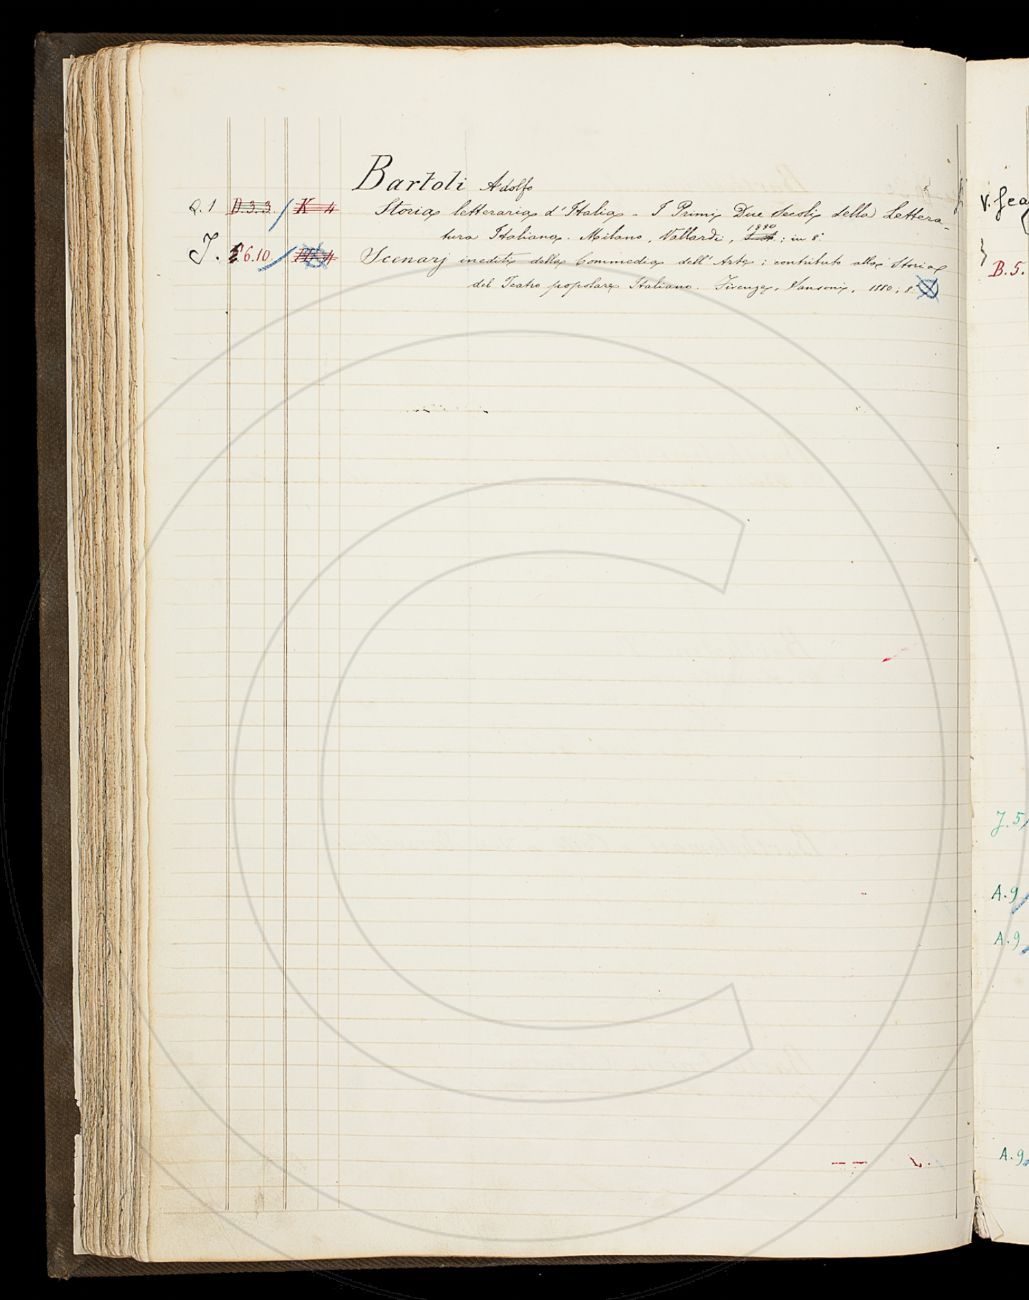 Bartoli Adolfo
Q.1 D.3.3. / K 4 Storia letteraria d'Italia. I Primi Due Secoli della Lettera-
tura Italiana. Milano, Vallardi, 1880; in 8°
J. 6.10. Scenarj inediti della Commedia dell'Arte: contributo alla Storia
del Teatro popolare Italiano. Firenze, Sansoni, 1880; 8°
B.5.
J.5
A.9
A.9
A.9